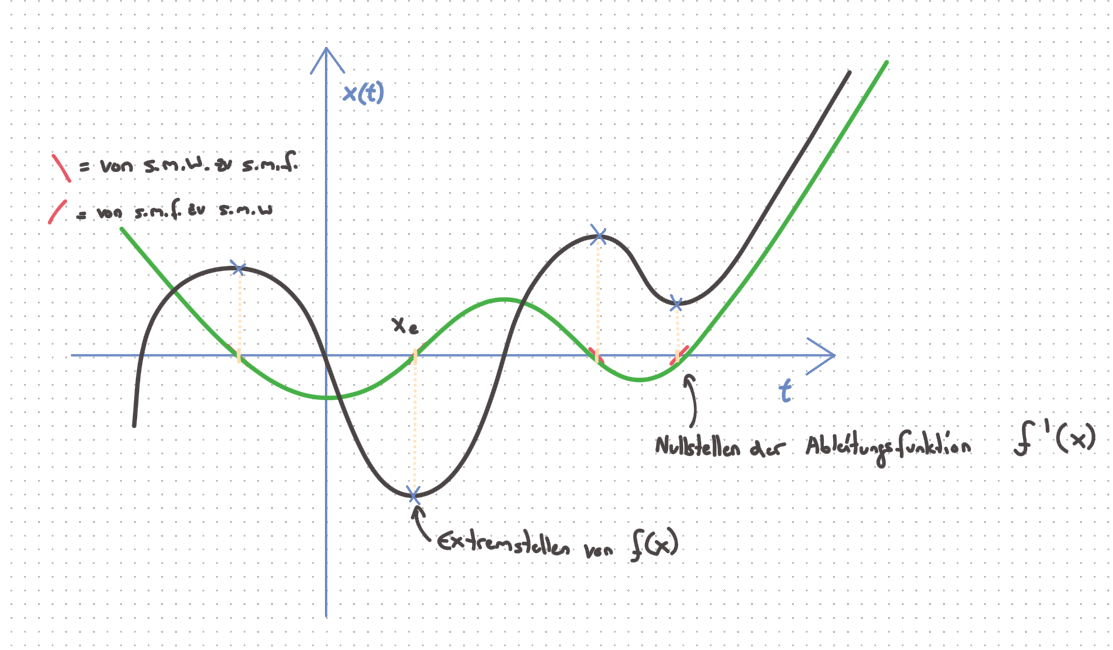 x(t)
\ = von s.m.W. zu s.m.f.
/ = von s.m.f. zu s.m.w
xe
t
Nullstellen der Ableitungsfunktion f'(x)
Extremstellen von f(x)